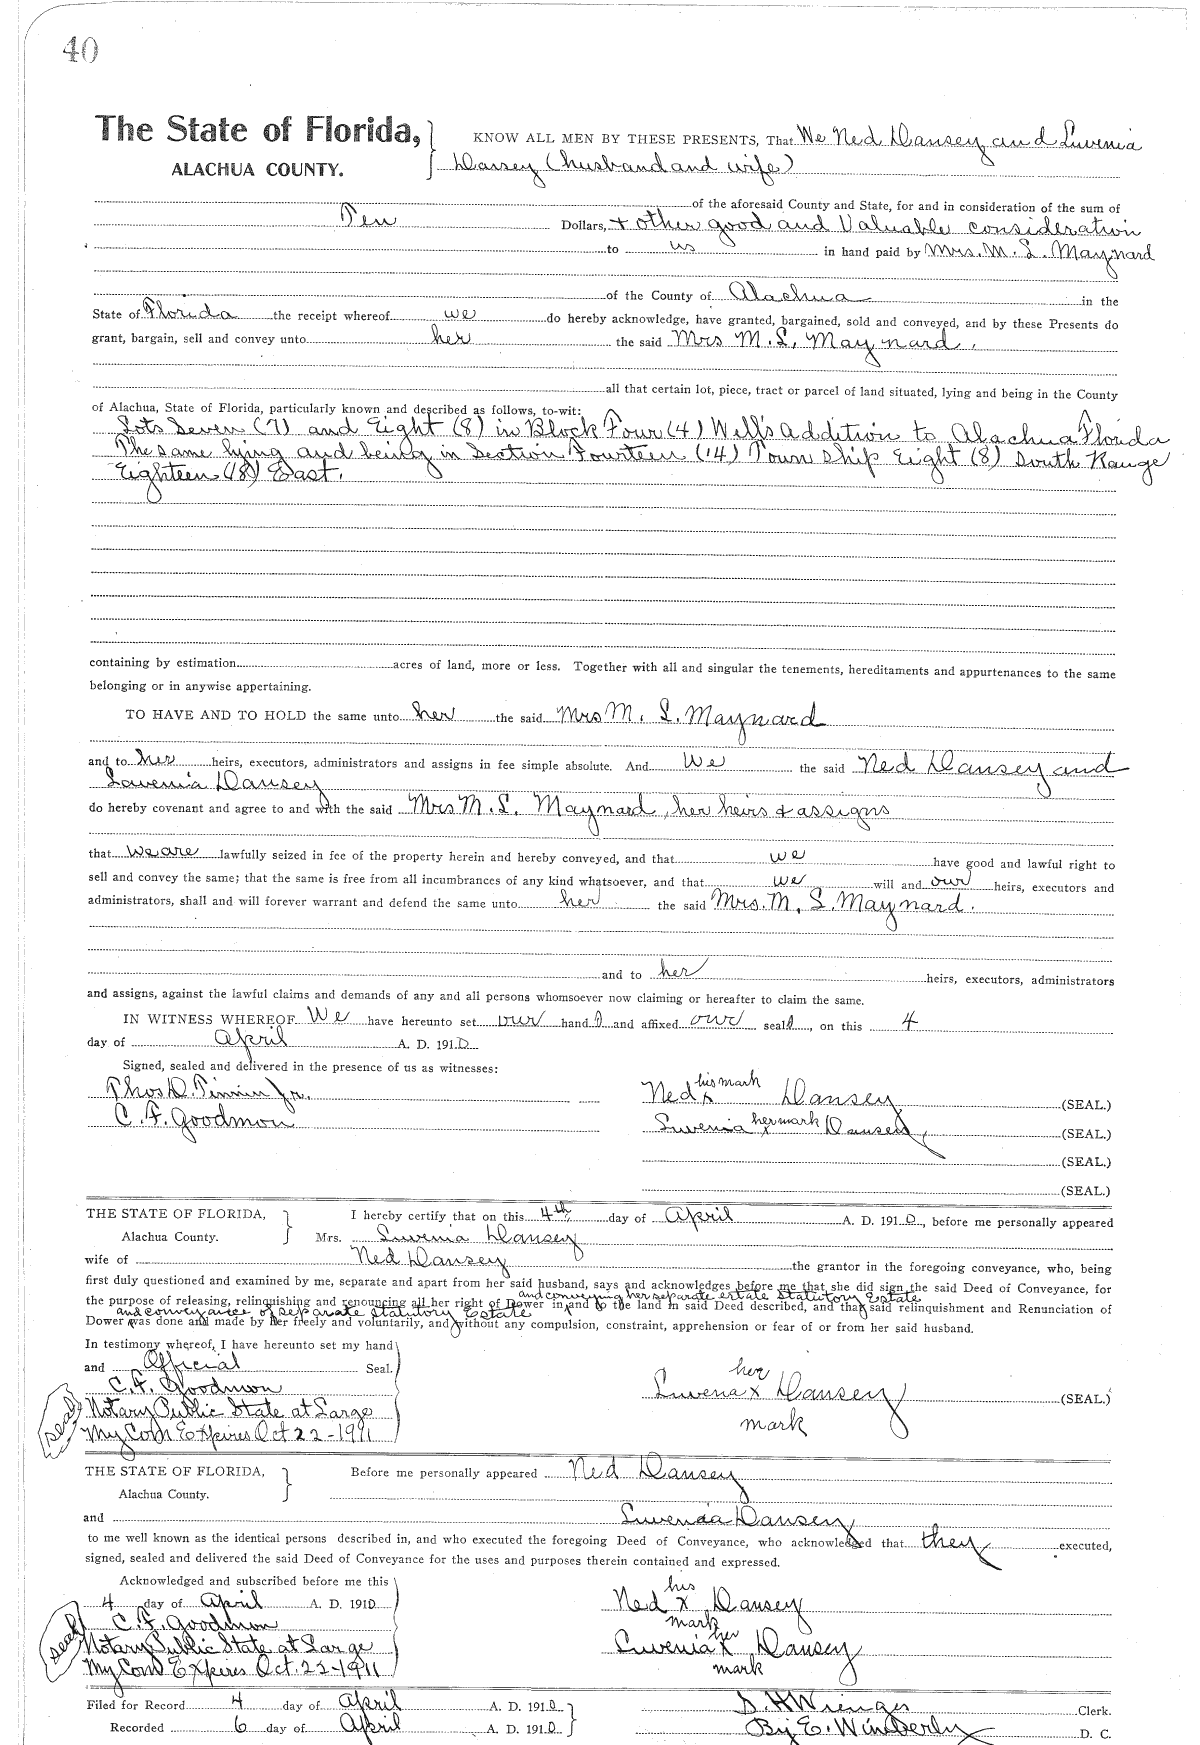 40
The State of Florida, KNOW ALL MEN BY THESE PRESENTS, That We Ned Dansey and Luvenia
ALACHUA COUNTY. Dansey (husband and wife)
of the aforesaid County and State, for and in consideration of the sum of
Ten Dollars, + other good and Valuable consideration
to us in hand paid by Mrs. M. L. Maynard
of the County of Alachua in the
State of Florida the receipt whereof we do hereby acknowledge, have granted, bargained, sold and conveyed, and by these Presents do
grant, bargain, sell and convey unto her the said Mrs M. L. Maynard.
all that certain lot, piece, tract or parcel of land situated, lying and being in the County
of Alachua, State of Florida, particularly known and described as follows, to-wit:
Lots Seven (7) and Eight (8) in Block Four (4) Wells Addition to Alachua Florida
The same lying and being in Section Fourteen (14) Town ship Eight (8) South Range
Eighteen (18) East.
containing by estimation acres of land, more or less. Together with all and singular the tenements, hereditaments and appurtenances to the same
belonging or in anywise appertaining.
TO HAVE AND TO HOLD the same unto her the said Mrs M. L. Maynard
and to her heirs, executors, administrators and assigns in fee simple absolute. And We the said Ned Dansey and
Luvenia Dansey
do hereby covenant and agree to and with the said Mrs M. L. Maynard, her heirs + assigns
that we are lawfully seized in fee of the property herein and hereby conveyed, and that we have good and lawful right to
sell and convey the same; that the same is free from all incumbrances of any kind whatsoever, and that we will and our heirs, executors and
administrators, shall and will forever warrant and defend the same unto her the said Mrs. M. L. Maynard.
and to her heirs, executors, administrators
and assigns, against the lawful claims and demands of any and all persons whomsoever now claiming or hereafter to claim the same.
IN WITNESS WHEREOF We have hereunto set our hands and affixed our seals, on this 4
day of April A. D. 1910
Signed, sealed and delivered in the presence of us as witnesses:
his mark
Jr. Ned x Dansey (SEAL.)
C. F. Goodmon Luvenia her x mark Dansey (SEAL.)
(SEAL.)
(SEAL.)
THE STATE OF FLORIDA, I hereby certify that on this 4th day of April A. D. 1910, before me personally appeared
Alachua County. Mrs. Luvenia Dansey
wife of Ned Dansey the grantor in the foregoing conveyance, who, being
first duly questioned and examined by me, separate and apart from her said husband, says and acknowledges before me that she did sign the said Deed of Conveyance, for
and conveying her separate estate Statutory Estate
the purpose of releasing, relinquishing and renouncing all her right of Dower in and to the land in said Deed described, and that said relinquishment and Renunciation of
and conveyance of separate statutory Estate
Dower was done and made by her freely and voluntarily, and without any compulsion, constraint, apprehension or fear of or from her said husband.
In testimony whereof, I have hereunto set my hand
and Official Seal.
C. F. Goodmon her
Luvenia x Dansey (SEAL.)
seal Notary Public State at Large mark
My Com Expires Oct 22-1911
THE STATE OF FLORIDA, Before me personally appeared Ned Dansey
Alachua County.
and Luvenia Dansey
to me well known as the identical persons described in, and who executed the foregoing Deed of Conveyance, who acknowledged that they executed,
signed, sealed and delivered the said Deed of Conveyance for the uses and purposes therein contained and expressed.
Acknowledged and subscribed before me this his
4 day of April A. D. 1910 Ned x Dansey
C. F. Goodmon mark
her
seal Notary Public State at Large Luvenia x Dansey
My Com Expires Oct. 22-1911 mark
Filed for Record 4 day of April A. D. 1910 Clerk.
Recorded 6 day of April A. D. 1910 By E. Wimberly D. C.